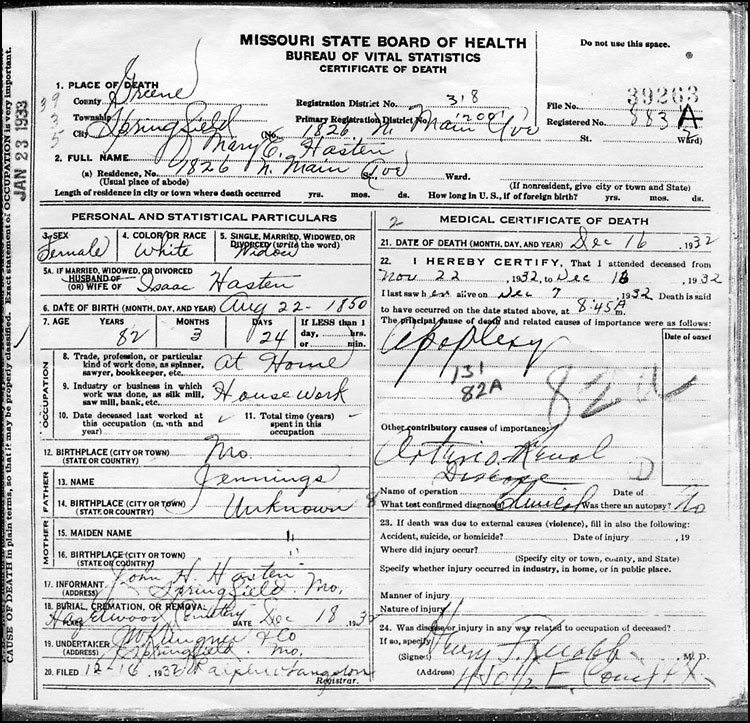 MISSOURI STATE BOARD OF HEALTH
BUREAU OF VITAL STATISTICS
CERTIFICATE OF DEATH
Do not use this space.
JAN 23 1933
1. PLACE OF DEATH
County Greene
Registration District No. 318
File No. 39263
Township
Primary Registration District No. 2001
Registered No. 883 A
City Springfield (No. 1826 N. Main Ave St. 2 Ward)
2. FULL NAME Mary E. Hasten
(a) Residence, No. 1826 N. Main Ave St., Ward.
(Usual place of abode) (If nonresident, give city or town and State)
Length of residence in city or town where death occurred yrs. mos. ds. How long in U. S., if of foreign birth? yrs. mos. ds.
PERSONAL AND STATISTICAL PARTICULARS
3. SEX 4. COLOR OR RACE 5. SINGLE, MARRIED, WIDOWED, OR DIVORCED (write the word)
Female White Widow
5A. IF MARRIED, WIDOWED, OR DIVORCED
HUSBAND OF
(OR) WIFE OF Isaac Hasten
6. DATE OF BIRTH (MONTH, DAY, AND YEAR) Aug 22 - 1850
7. AGE YEARS MONTHS DAYS If LESS than 1 day, hrs. or min.
82 3 24
OCCUPATION
8. Trade, profession, or particular kind of work done, as spinner, sawyer, bookkeeper, etc. At Home
9. Industry or business in which work was done, as silk mill, saw mill, bank, etc. House work
10. Date deceased last worked at this occupation (month and year)
11. Total time (years) spent in this occupation
12. BIRTHPLACE (CITY OR TOWN) (STATE OR COUNTRY) Mo.
FATHER
13. NAME Jennings
14. BIRTHPLACE (CITY OR TOWN) (STATE OR COUNTRY) Unknown
MOTHER
15. MAIDEN NAME "
16. BIRTHPLACE (CITY OR TOWN) (STATE OR COUNTRY) "
17. INFORMANT John H. Hasten
(ADDRESS) Springfield Mo.
18. BURIAL, CREMATION, OR REMOVAL
PLACE Hazelwood Cemetery DATE Dec 18, 1932
19. UNDERTAKER & Co
(ADDRESS) Springfield Mo.
20. FILED 12-16, 1932 Ralph Langston
Registrar.
2 MEDICAL CERTIFICATE OF DEATH
21. DATE OF DEATH (MONTH, DAY, AND YEAR) Dec 16, 1932
22. I HEREBY CERTIFY, That I attended deceased from
Nov 22, 1932, to Dec 16, 1932
I last saw her alive on Dec 7, 1932 Death is said
to have occurred on the date stated above, at 8:45A m.
The principal cause of death and related causes of importance were as follows:
Date of onset
Apoplexy
131
82A
82a
Other contributory causes of importance:
Arterio. Renal
Disease
Name of operation Date of
What test confirmed diagnosis? Clinical Was there an autopsy? No
23. If death was due to external causes (violence), fill in also the following:
Accident, suicide, or homicide? Date of injury , 19
Where did injury occur?
(Specify city or town, county, and State)
Specify whether injury occurred in industry, in home, or in public place.
Manner of injury
Nature of injury
24. Was disease or injury in any way related to occupation of deceased?
If so, specify
(Signed) M. D.
(Address)
CAUSE OF DEATH in plain terms, so that it may be properly classified. Exact statement of OCCUPATION is very important.